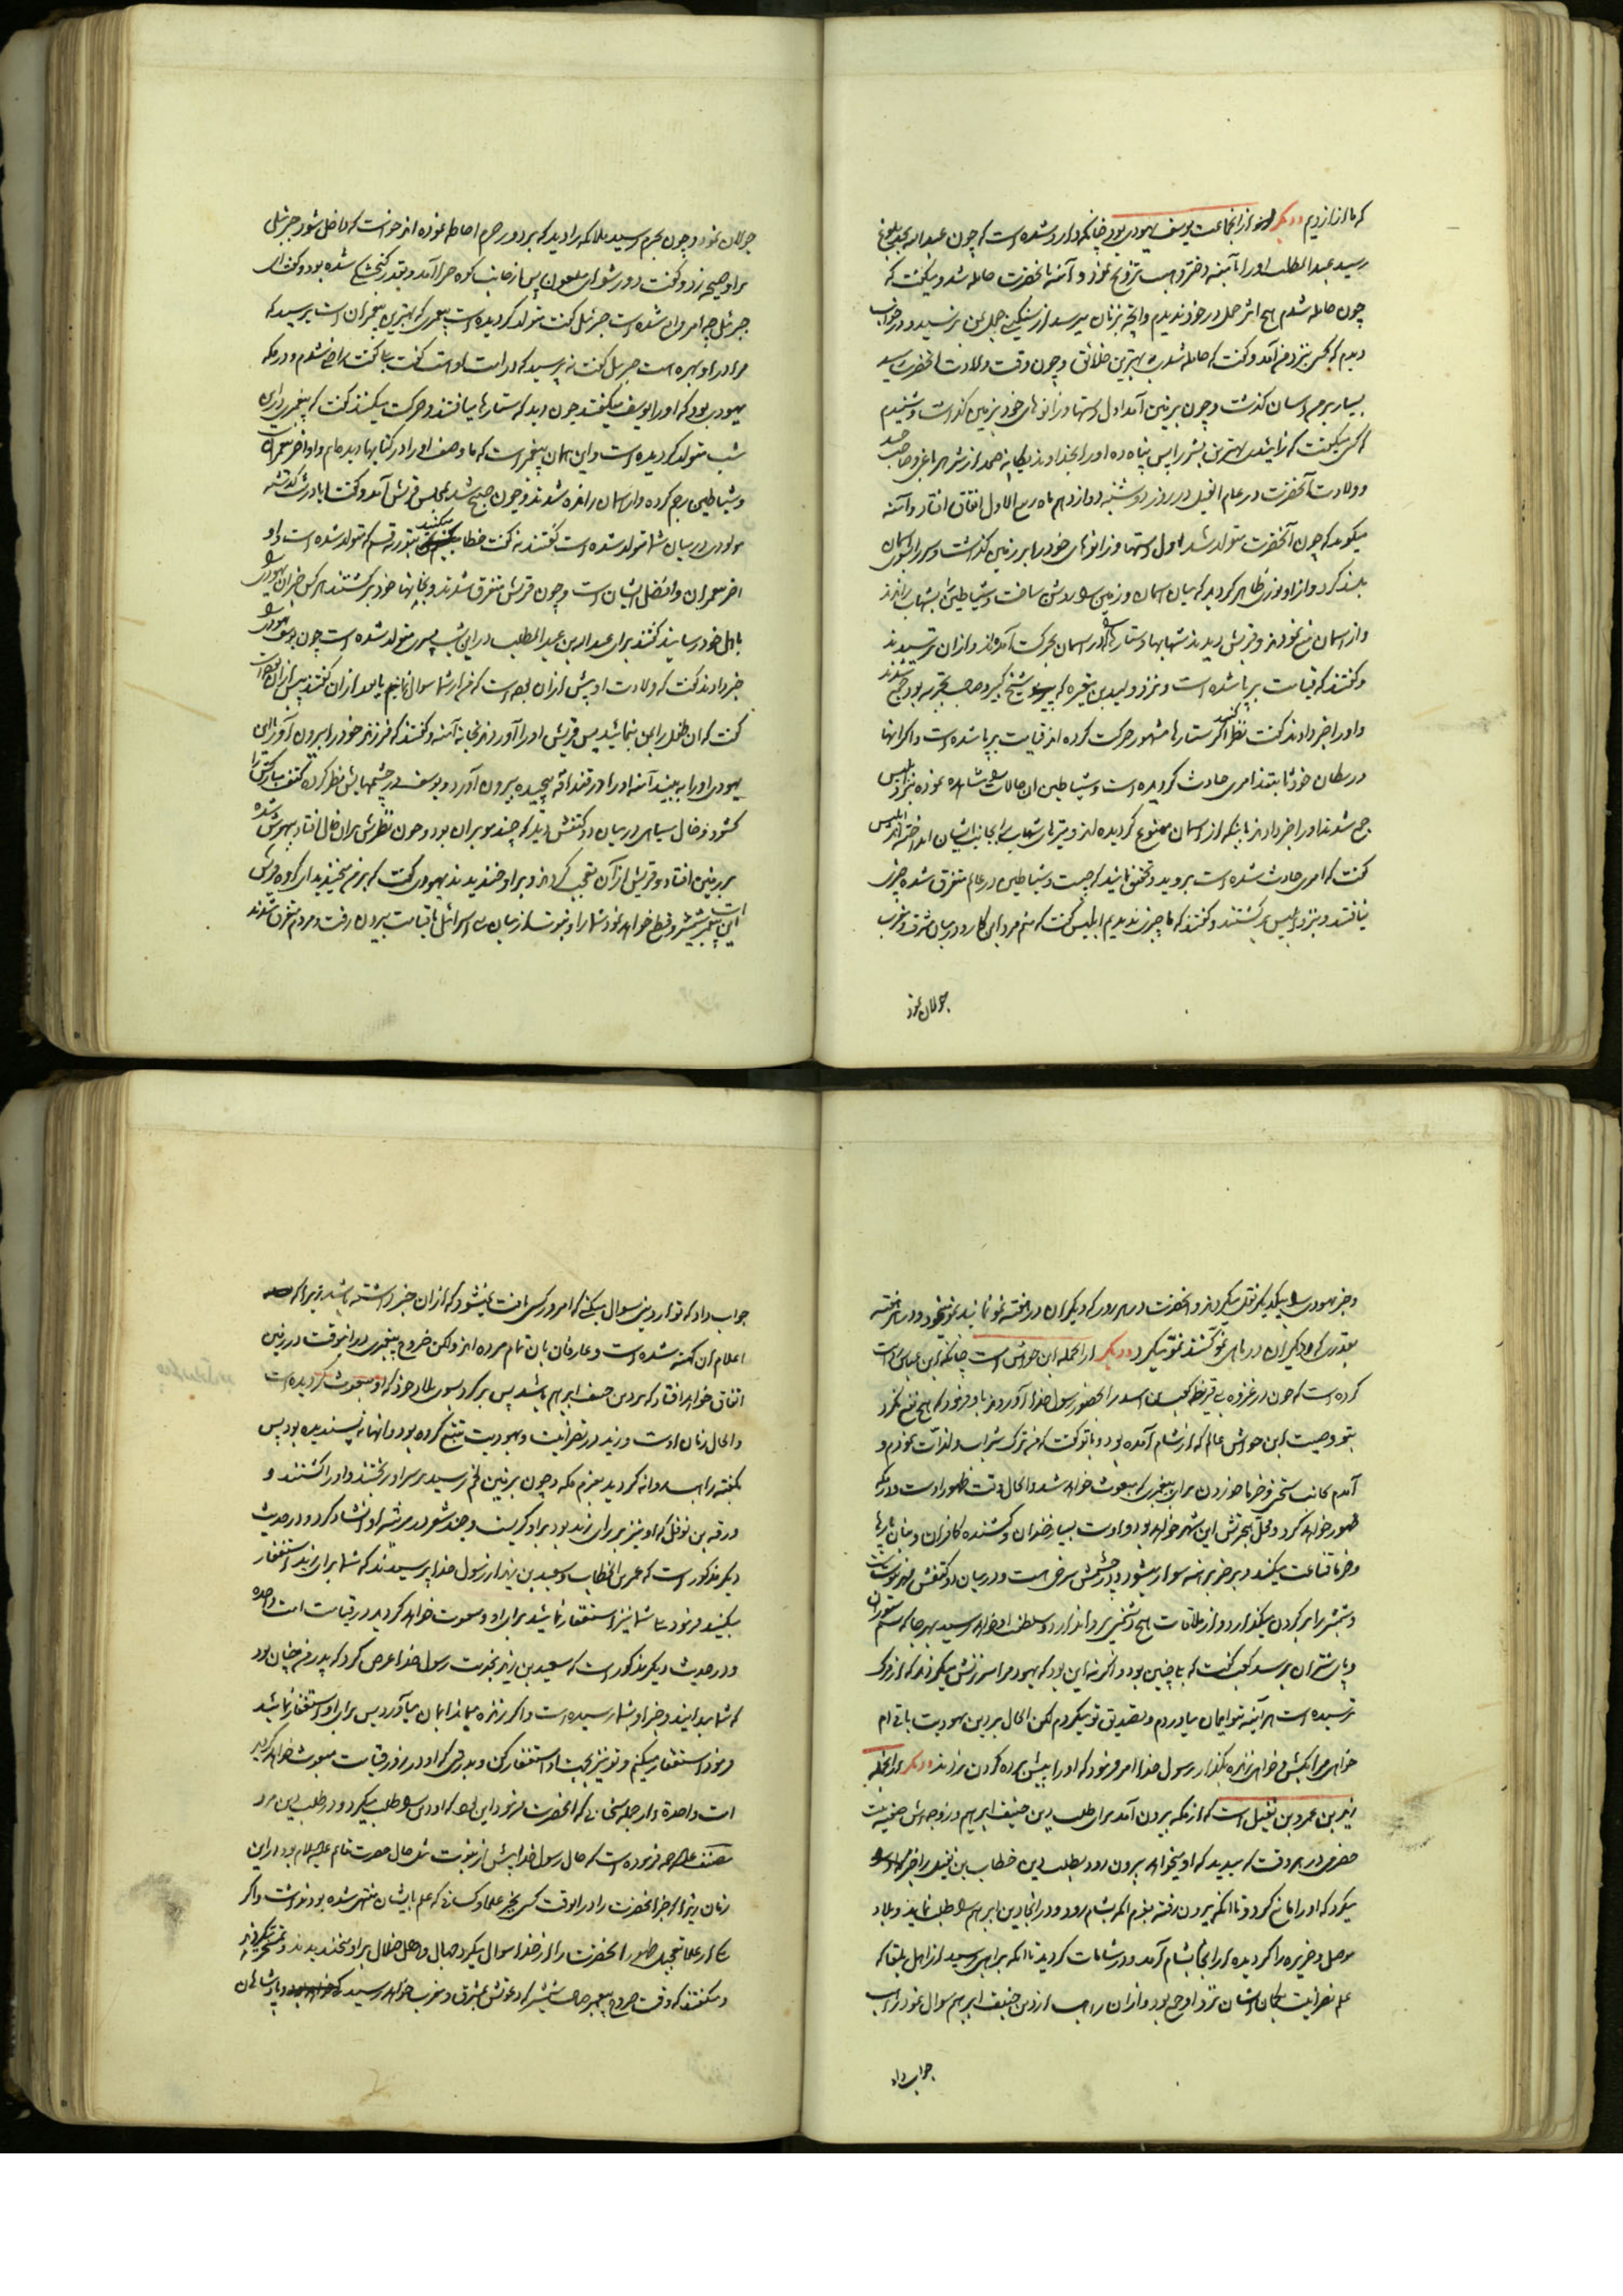 که ما از نازدیم و دیگر از انجماعت یوسف یهودی بود چنانکه وارد شده است که چون عبدالله بحد بلوغ
رسید عبدالمطلب او را بآمنه دختر وهب تزویج نمود و آمنه بانحضرت حامله شد و میگفت که
چون حامله شدم هیچ اثر حمل در خود ندیدم و آنچه بزنان میرسد از سنگینی حمل بمن نرسید و در خواب
دیدم که کسی بنزد من آمد و گفت که حامله شدی به بهترین خلائق و چون وقت ولادت انحضرت رسید
بسیار بر من اسان گذشت و چون بر زمین آمد اول دستها و زانوهای خود بزمین گذاشت و شنیدم
که کسی میگفت که زائیدی بهترین بشر را پس پناه ده او را بخداوند یگانه صمد از شر هر باغی و صاحب حسد
و ولادت آنحضرت در عام الفیل در روز دوشنبه دوازدهم ماه ربیع الاول اتفاق افتاد و آمنه
میگوید که چون آنحضرت متولد شد اول دستها و زانوهای خود را بر زمین گذاشت و سر را بسوی آسمان
بلند کرد و از او نوری ظاهر گردید که میان اسمان و زمین را روشن ساخت و شیاطین را بشهاب راندند
و از اسمان منع نمودند و قریش دیدند شهابها و ستارها را که در اسمان بحرکت آمده‌اند و ازان ترسیدند
و گفتند که قیامت بر پا شده است و نزد ولید بن مغیره که شیخ کبیر و صاحب تجربه بود جمع شدند
و او را خبر دادند گفت نظر کنید اگر ستارهای مشهور حرکت کرده اند قیامت بر پا شده است و اگر انها
در مکان خود ثابتند امری حادث گردیده است و شیاطین ان حالات را مشاهده نموده بنزد ابلیس
جمع شدند او را خبر دادند باینکه از اسمان ممنوع گردیده اند و تیرهای شهاب را بجانب ایشان انداخته اند ابلیس
گفت که امری حادث شده است بروید و تحقیق نمائید که چیست و شیاطین در عالم متفرق شده چیزی
نیافتند و بنزد ابلیس برگشتند و گفتند که ما چیزی ندیدیم ابلیس گفت که منم مرد این کار و در میان مشرق و مغرب
جولان نمود
جولان نمود و چون بحرم رسید ملائکه را دید که بر دور حرم احاطه نموده اند خواست که داخل شود جبرئیل
بر او صیحه زد و گفت دور شو ای ملعون پس از جانب کوه حرا آمد و بقدر گنجشکی شده بود و گفت ای
جبرئیل چه امر واقع شده است جبرئیل گفت متولد گردیده است پیغمبری که بهترین پیغمبران است پرسید که
مرا در او بهره است جبرئیل گفت نه پرسید که در امت او است گفت بلی گفت راضی شدم و در مکه
یهودی بود که او را یوسف میگفتند چون دید که ستارها میافتند و حرکت میکنند گفت که پیغمبری در این
شب متولد گردیده است و این همان پیغمبر است که ما وصف او را در کتابها دیده‌ایم و او آخر پیغمبران است
و شیاطین رجم کرده و از اسمان رانده شدند و چون صبح شد بمجلس قریش آمد و گفت ایا در شب گذشته
مولودی در میان شما متولد شده است گفتند نه گفت خطا میکنید بتوریة قسم که متولد شده است و او
اخر پیغمبران و افضل ایشان است و چون قریش متفرق شدند و بخانهای خود برگشتند هر کس خبر ان یهودی را
باهل خود رسانیدند گفتند برای عبدالله بن عبدالمطلب در این شب پسری متولد شده است چون یوسف یهودی را
خبر دادند گفت که ولادت او پیش از ان بوده است که من از شما سوال نمایم یا بعد از ان گفتند پیش از ان بوده است
گفت که ان طفل را بمن بنمائید پس قریش او را آوردند بخانه آمنه و گفتند که فرزند خود را بیرون آور تا این
یهودی او را به بیند آمنه او را در قنداقه پیچیده بیرون آورد و یوسف در چشمهایش نظر کرده کتف مبارکش را
گشود و خال سیاهی در میان دو کتفش دید که چند مو بران بود و چون نظرش بران خال افتاد بیهوش شده
بر زمین افتاد و قریش از آن تعجب کردند و بر او خندیدند یهودی گفت که بر من میخندید ای گروه قریش
این پیغمبر شمشیر است و قطع خواهد نمود شما را و نبوت از میان بنی اسرائیل تا قیامت بیرون رفت و مردم متفرق شدند
و خبر یهودی را بیکدیگر نقل میکردند و انحضرت در هر روز که دیگران در هفته نمو نمایند نمو مینمود و در هر هفته
بقدری که دیگران در ماهی نمو کنند نمو میکرد و دیگر از انجمله ابن حواش است چنانکه ابن عباس روایت
کرده است که چون در غزوه بنی قریظه کعب بن اسد را بحضور رسول خدا آوردند باو فرمود که هیچ نفع نکرد
بتو وصیت ابن حواش عالم که از شام آمده بود و با تو گفت که من ترک شراب و لذات نمودم و
آمدم بجانب سختی و خرما خوردن برای پیغمبری که مبعوث خواهد شد و الحال وقت ظهور اوست و در مکه
ظهور خواهد کرد و محل هجرتش این شهر خواهد بود و اوست بسیار خندان و کشنده کافران و بنان پارها
و خرما قناعت میکند و بر خر برهنه سوار میشود و در چشمش سرخی هست و در میان دو کتفش مهر نبوت است
و شمشیر را بر گردن میگذارد و از ملاقات هیچ دشمنی پروا ندارد و سلطنت او خواهد رسید بهر جا که سم ستوران
و پای شتران برسد کعب گفت که بلی چنین بود و اگر نه این بود که یهود مرا سرزنش میکردند که از مرگ
ترسیده است هر آینه بتو ایمان میاوردم و تصدیق تو میکردم لکن الحال بر دین یهودیت باقی ام
خواهی مرا بکش و خواهی زنده بگذار رسول خدا امر فرمود که او را پیش برده گردن بزدند و دیگر از انجمله
زید بن عمرو بن نفیل است که از مکه بیرون آمد برای طلب دین حنیف ابراهیم و زوجه‌اش صفیه بنت
حضرمی در هر وقت که میدید که او میخواهد بیرون رود بطلب دین خطاب بن نفیل را خبر میداد و
میکرد که او را مانع گردد تا انکه بیرون رفته بعزم انکه بشام رود و در انجا دین ابراهیم را طلب نماید و بلاد
موصل و جزیره را گردیده از انجا بشام آمد و در شامات گردید تا انکه براهبی رسید از اهل بلقا که
علم نصرانیت بگمان ایشان نزد او جمع بود و از ان راهب از دین حنیف ابراهیم سوال نمود راهب
جواب داد
جواب داد که تو از دینی سوال میکنی که امروز کسی یافت نمیشود که از ان خبر داشته باشد زیرا که
اعلام ان کهنه شده است و عارفان بان تمام مرده اند ولکن خروج پیغمبری در اینوقت در زمین
اتفاق خواهد افتاد که بر دین حنیف ابراهیم باشد پس برگرد بسوی بلاد خود که او مبعوث گردیده است
و الحال زمان اوست و زید در نصرانیت و یهودیت تتبع کرده بود و انها را نه پسندیده بود پس
بگفته راهب روانه گردید بعزم مکه و چون بزمین لخم رسید بر سر او ریختند و او را کشتند و
ورقه بن نوفل که او نیز بر رای زید بود بر او گریست و چند شعر در مرثیه او انشاد کرد و در حدیث
دیگر مذکور است که عمر بن الخطاب و سعید بن زید از رسول خدا پرسیدند که شما برای زید استغفار
میکنید فرمود بلی شما نیز استغفار نمائید برای او و مبعوث خواهد گردید در قیامت امت واحده
و در حدیث دیگر مذکور است که سعید بن زید بخدمت رسول خدا عرض کرد که پدر من چنان بود
که شما میدانید و خبر او بشما رسیده است و اگر زنده میماند ایمان میآورد پس برای او استغفار نمائید
فرمود استغفار میکنم و تو نیز بجهت او استغفار کن و بدرستی که او در روز قیامت مبعوث خواهد گردید
امت واحدة و از جمله سخنانی که انحضرت فرمود این بود که او دین را طلب میکرد و در طلب دین مرد
مصنف علیه الرحمه فرموده است که حال رسول خدا پیش از نبوت مثل حال حضرت قائم علیه السلام بود در این
زمان زیرا که خبر انحضرت را در انوقت کسی بجز علما و کسانی که علم بایشان منتهی شده بود نداشت و اگر
یکی از علما تعجیل ظهور انحضرت را از خدا سوال میکرد جهال و اهل ضلال بر او میخندیدند و تمسخر میکردند
و میگفتند که وقت خروج پیغمبر صاحب شمشیر که دعوتش بمشرق و مغرب خواهد رسید که و پادشاهان